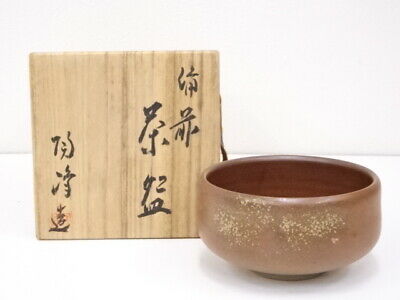 備前
茶盌
陶峰 造